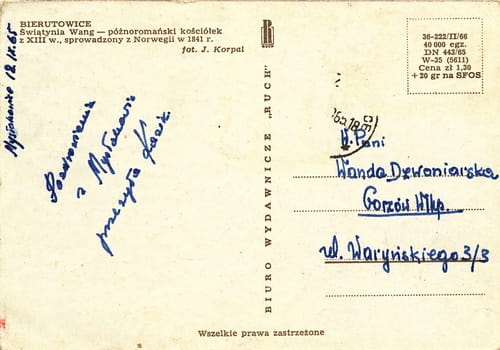 BIERUTOWICE
Świątynia Wang — późnoromański kościółek
z XIII w., sprowadzony z Norwegii w 1841 r.
fot. J. Korpal
36-222/II/66
40 000 egz.
DN 443/65
W-35 (5611)
Cena zł 1,30
+ 20 gr na SFOS
Pozdrowienia
z Mysłakowic
przesyła
BIURO WYDAWNICZE „RUCH”
W. Pani
Wanda Dzwoniarska
Gorzów Wlkp.
ul. Waryńskiego 3/3
Wszelkie prawa zastrzeżone